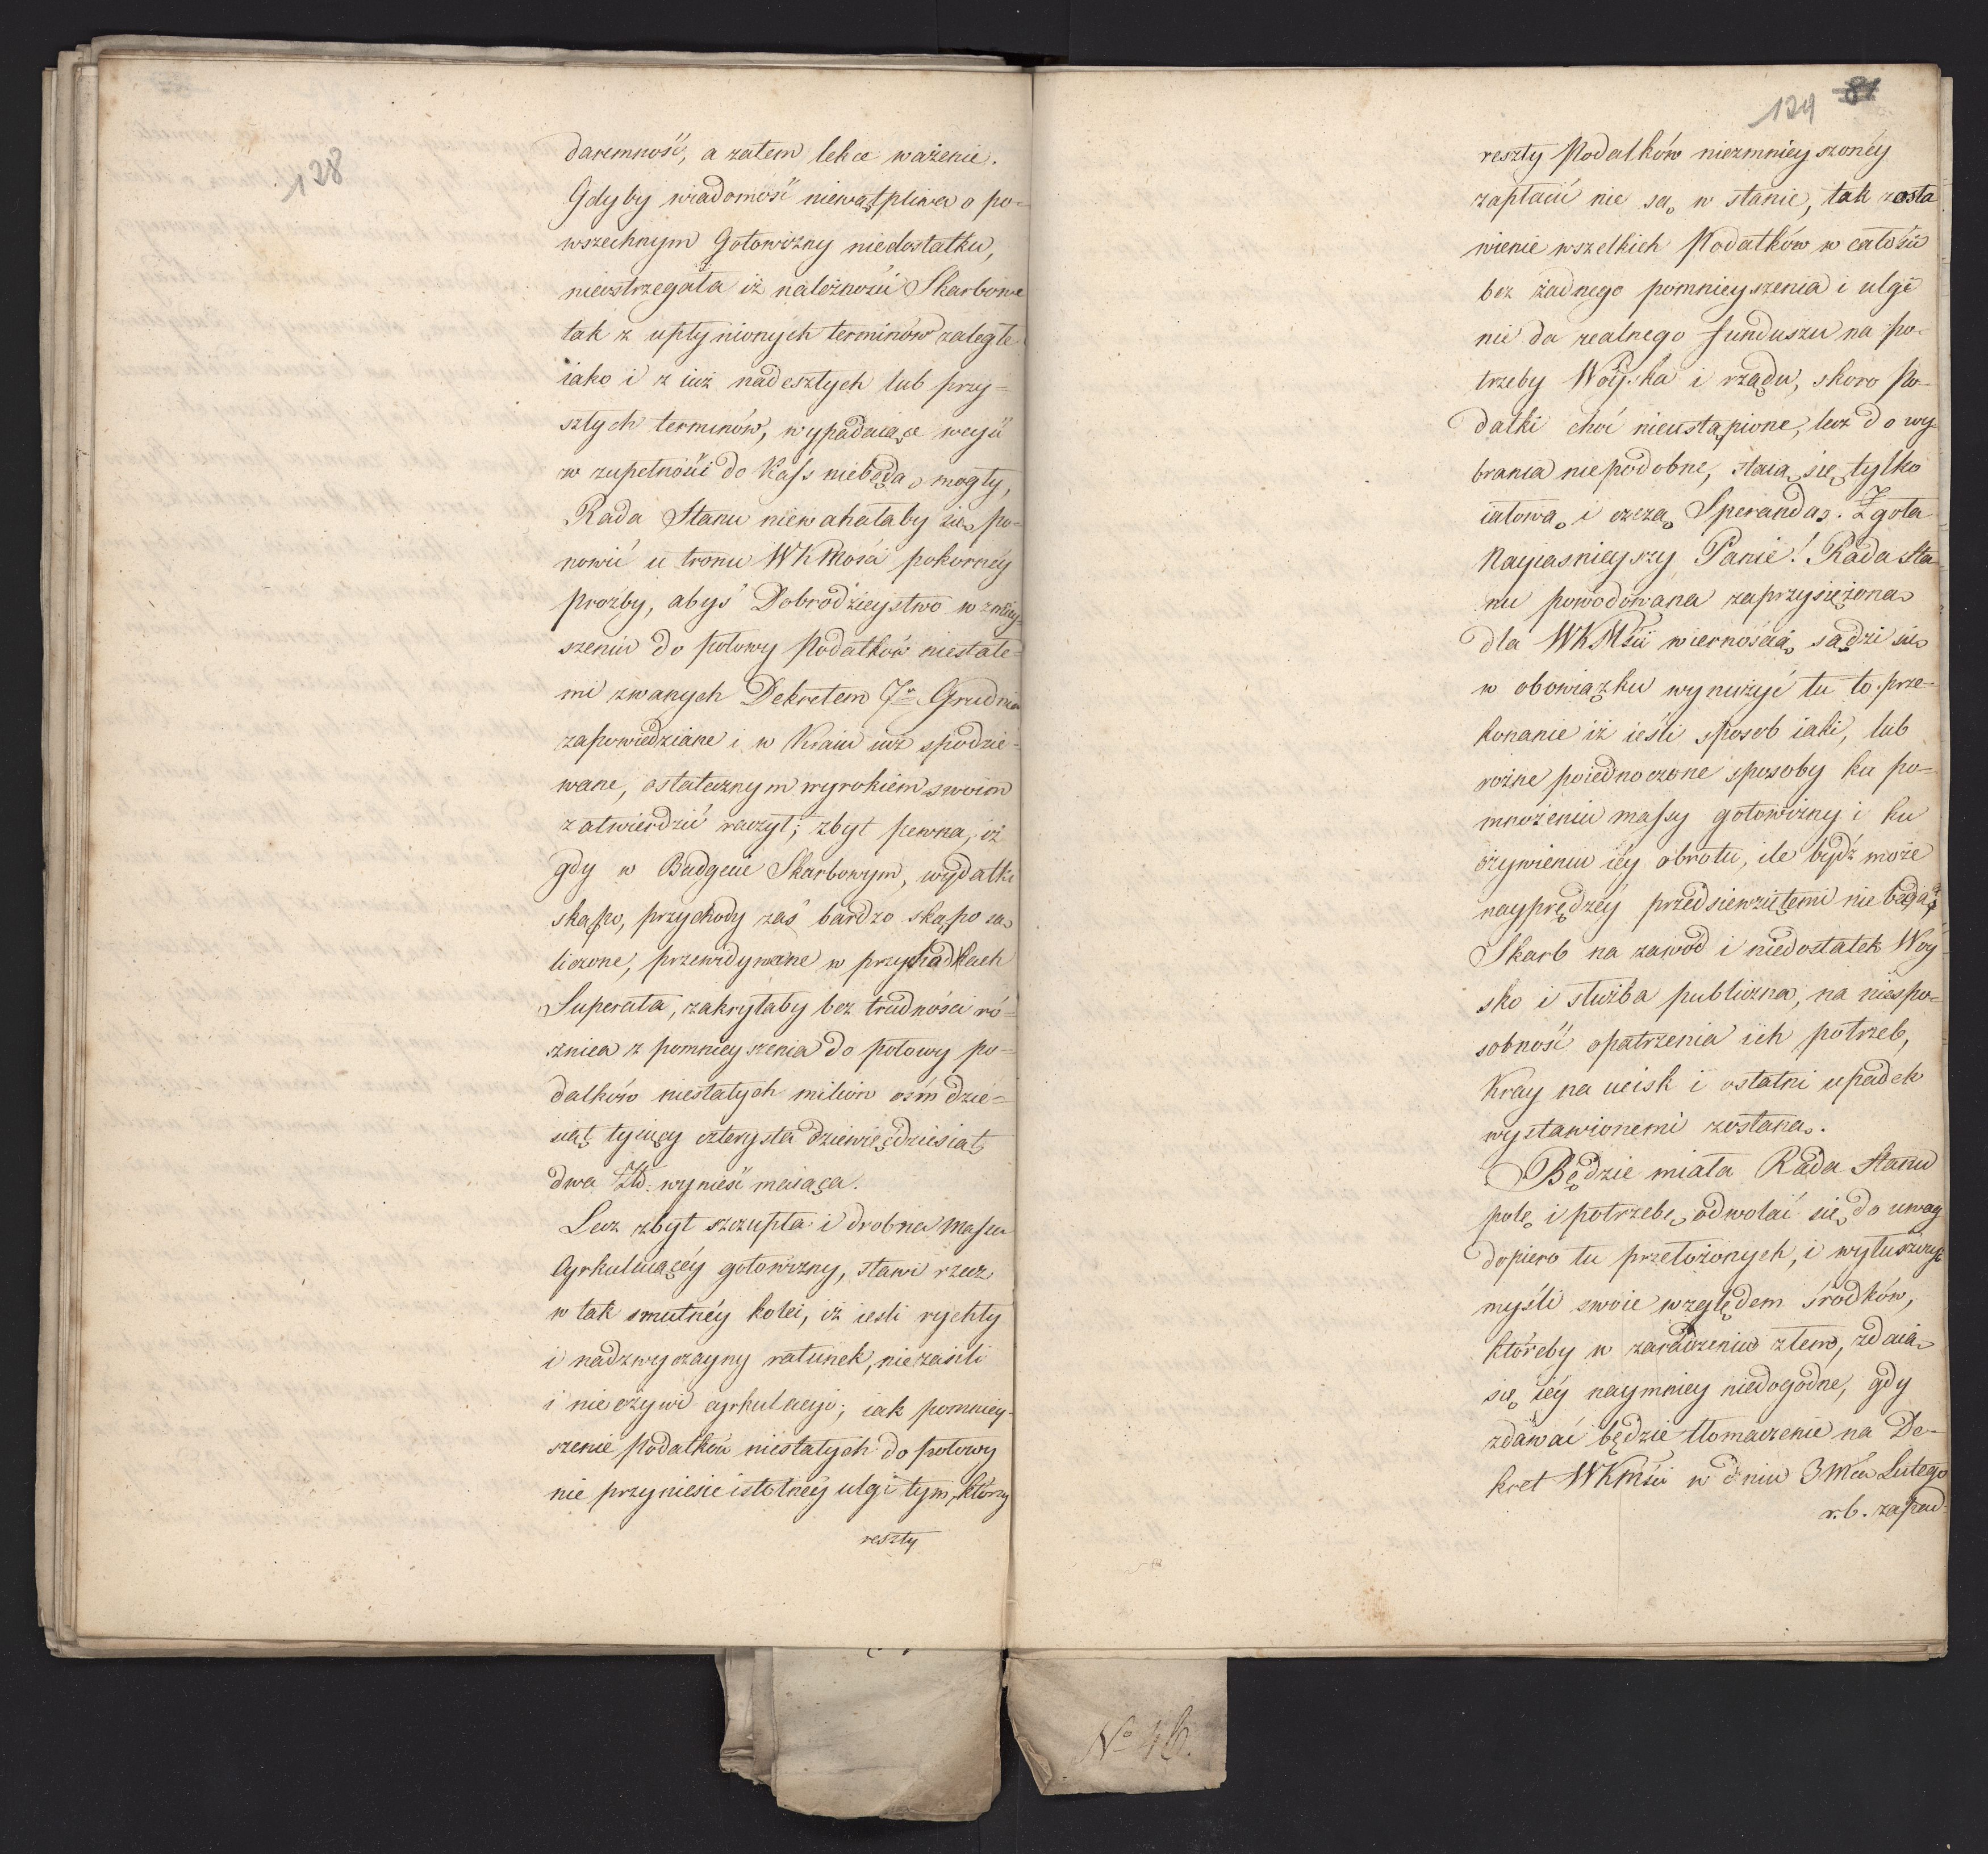 128
daremność, a zatem lekce ważenie.
Gdyby wiadomość niewątpliwa o po-
wszechnym Gotowizny niedostatku,
nieostrzegała iż należności Skarbowe
tak z upłynionych terminów zaległe
iako i z iuż nadeszłych lub przy-
szłych terminów, wypadaiące weyść
w zupełności do Kass niebędą mogły,
Rada Stanu niewahałaby się po-
nowić u tronu WKMości pokorney
prożby, abyś Dobrodzieystwo w zmniey-
szeniu do połowy Podatków niestałe-
mi zwanych Dekretem 7o Grudnia
zapowiedziane i w Kraiu iuż spodzie-
wane, ostatecznym wyrokiem swoim
zatwierdzić raczył; zbyt pewna, iż
gdy w Budgecie Skarbowym, wydatki
skąpo, przychody zaś bardzo skąpo są
liczone, przewidywane w przypadkach
Superata, zakryłaby bez trudności ró-
żnica z pomnieyszenia do połowy po-
datków niestałych milion ośmdzie-
siąt tysięcy czterysta dziewięćdziesiąt
dwa Złł: wynieść maiąca.
Lecz zbyt szczupła i drobna massa
Cyrkuluiącéy gotowizny, stawi rzecz
w tak smutnéy kolei, iż ieśli rychły
i nadzwyczayny ratunek, niezasili
i nieożywi cyrkulacyi; iak pomniey-
szenie Podatków niestałych do połowy
nie przyniesie istotnéy ulgi tym, którzy
reszty
129 81
reszty Podatków niezmnieyszonéy
zapłacić nie są w stanie, tak zosta
wienie wszelkich Podatków w całości
bez żadnego pomnieyszenia i ulgi
nie da realnego funduszu na po-
trzeby Woyska i rządu, skoro Po-
datki choć nieustąpione, lecz do wy-
brania niepodobne, staią się tylko
iałową i czczą Sperandą. Zgoła
Nayiasnieyszy Panie! Rada Sta-
nu powodowana zaprzysiężoną
dla WKMści wiernością, sądzi się
w obowiązku wynurzyć tu to prze-
konanie iż ieśli sposob iaki, lub
rożne poiednoczone sposoby ku po-
mnożeniu massy gotowizny i ku
ożywieniu iéy obrotu, ile bydź może
nayprędzéy przedsiewziętemi nie będą,
Skarb na zawod i niedostatek Woy-
sko i służba publiczna, na niespo-
sobność opatrzenia ich potrzeb,
Kray na ucisk i ostatni upadek
wystawionemi zostaną.
Będzie miała Rada Stanu
polę i potrzebę odwołać się do uwag
dopiero tu przełożonych, i wyłuszczyć
myśli swoie względem środków,
któreby w zaradzeniu złemu, zdaią
się iéy naymniey niedogodne, gdy
zdawać będzie tłomaczenie na De-
kret WKMści w dniu 3 Mca Lutego
r. b. zapad-
No 46.